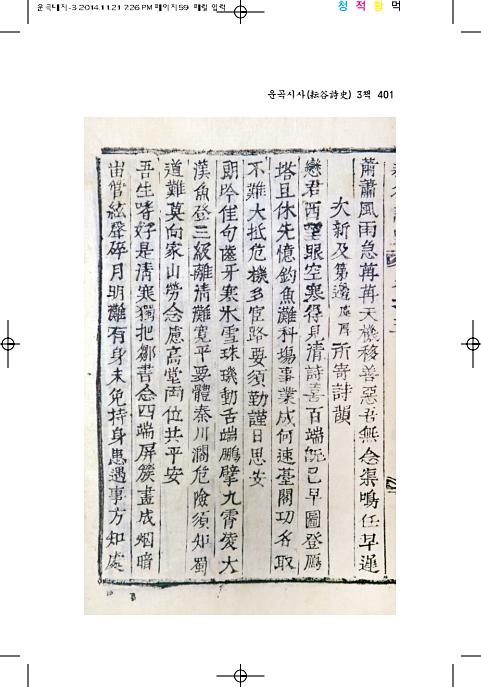 운곡대지-3 2014.11.21 7:26 PM 페이지59 매킬 입력
청 적 황 먹
운곡시사(耘谷詩史) 3책 401
蕭蕭風雨急苒苒天機移善惡吾無念渠鳴任早遲
次新及第邊 所寄詩韻
戀君西望眼空寒得見清詩喜百端旣已早圖登鴈
塔且休先憶釣魚灘科場事業成何速臺閣功名取
不難大抵危機多宦路要須勤謹日思安
朗吟佳句齒牙寒氷雪珠璣動舌端鵬擘九霄凌大
漢魚登三級離清灘寬平要體秦川濶危險須知蜀
道難莫向家山勞念慮高堂兩位共平安
吾生嗜好是清寒獨把鄒書念四端屏簇畫成烟暗
宙管絃聲碎月明灘有身未免持身患遇事方知處